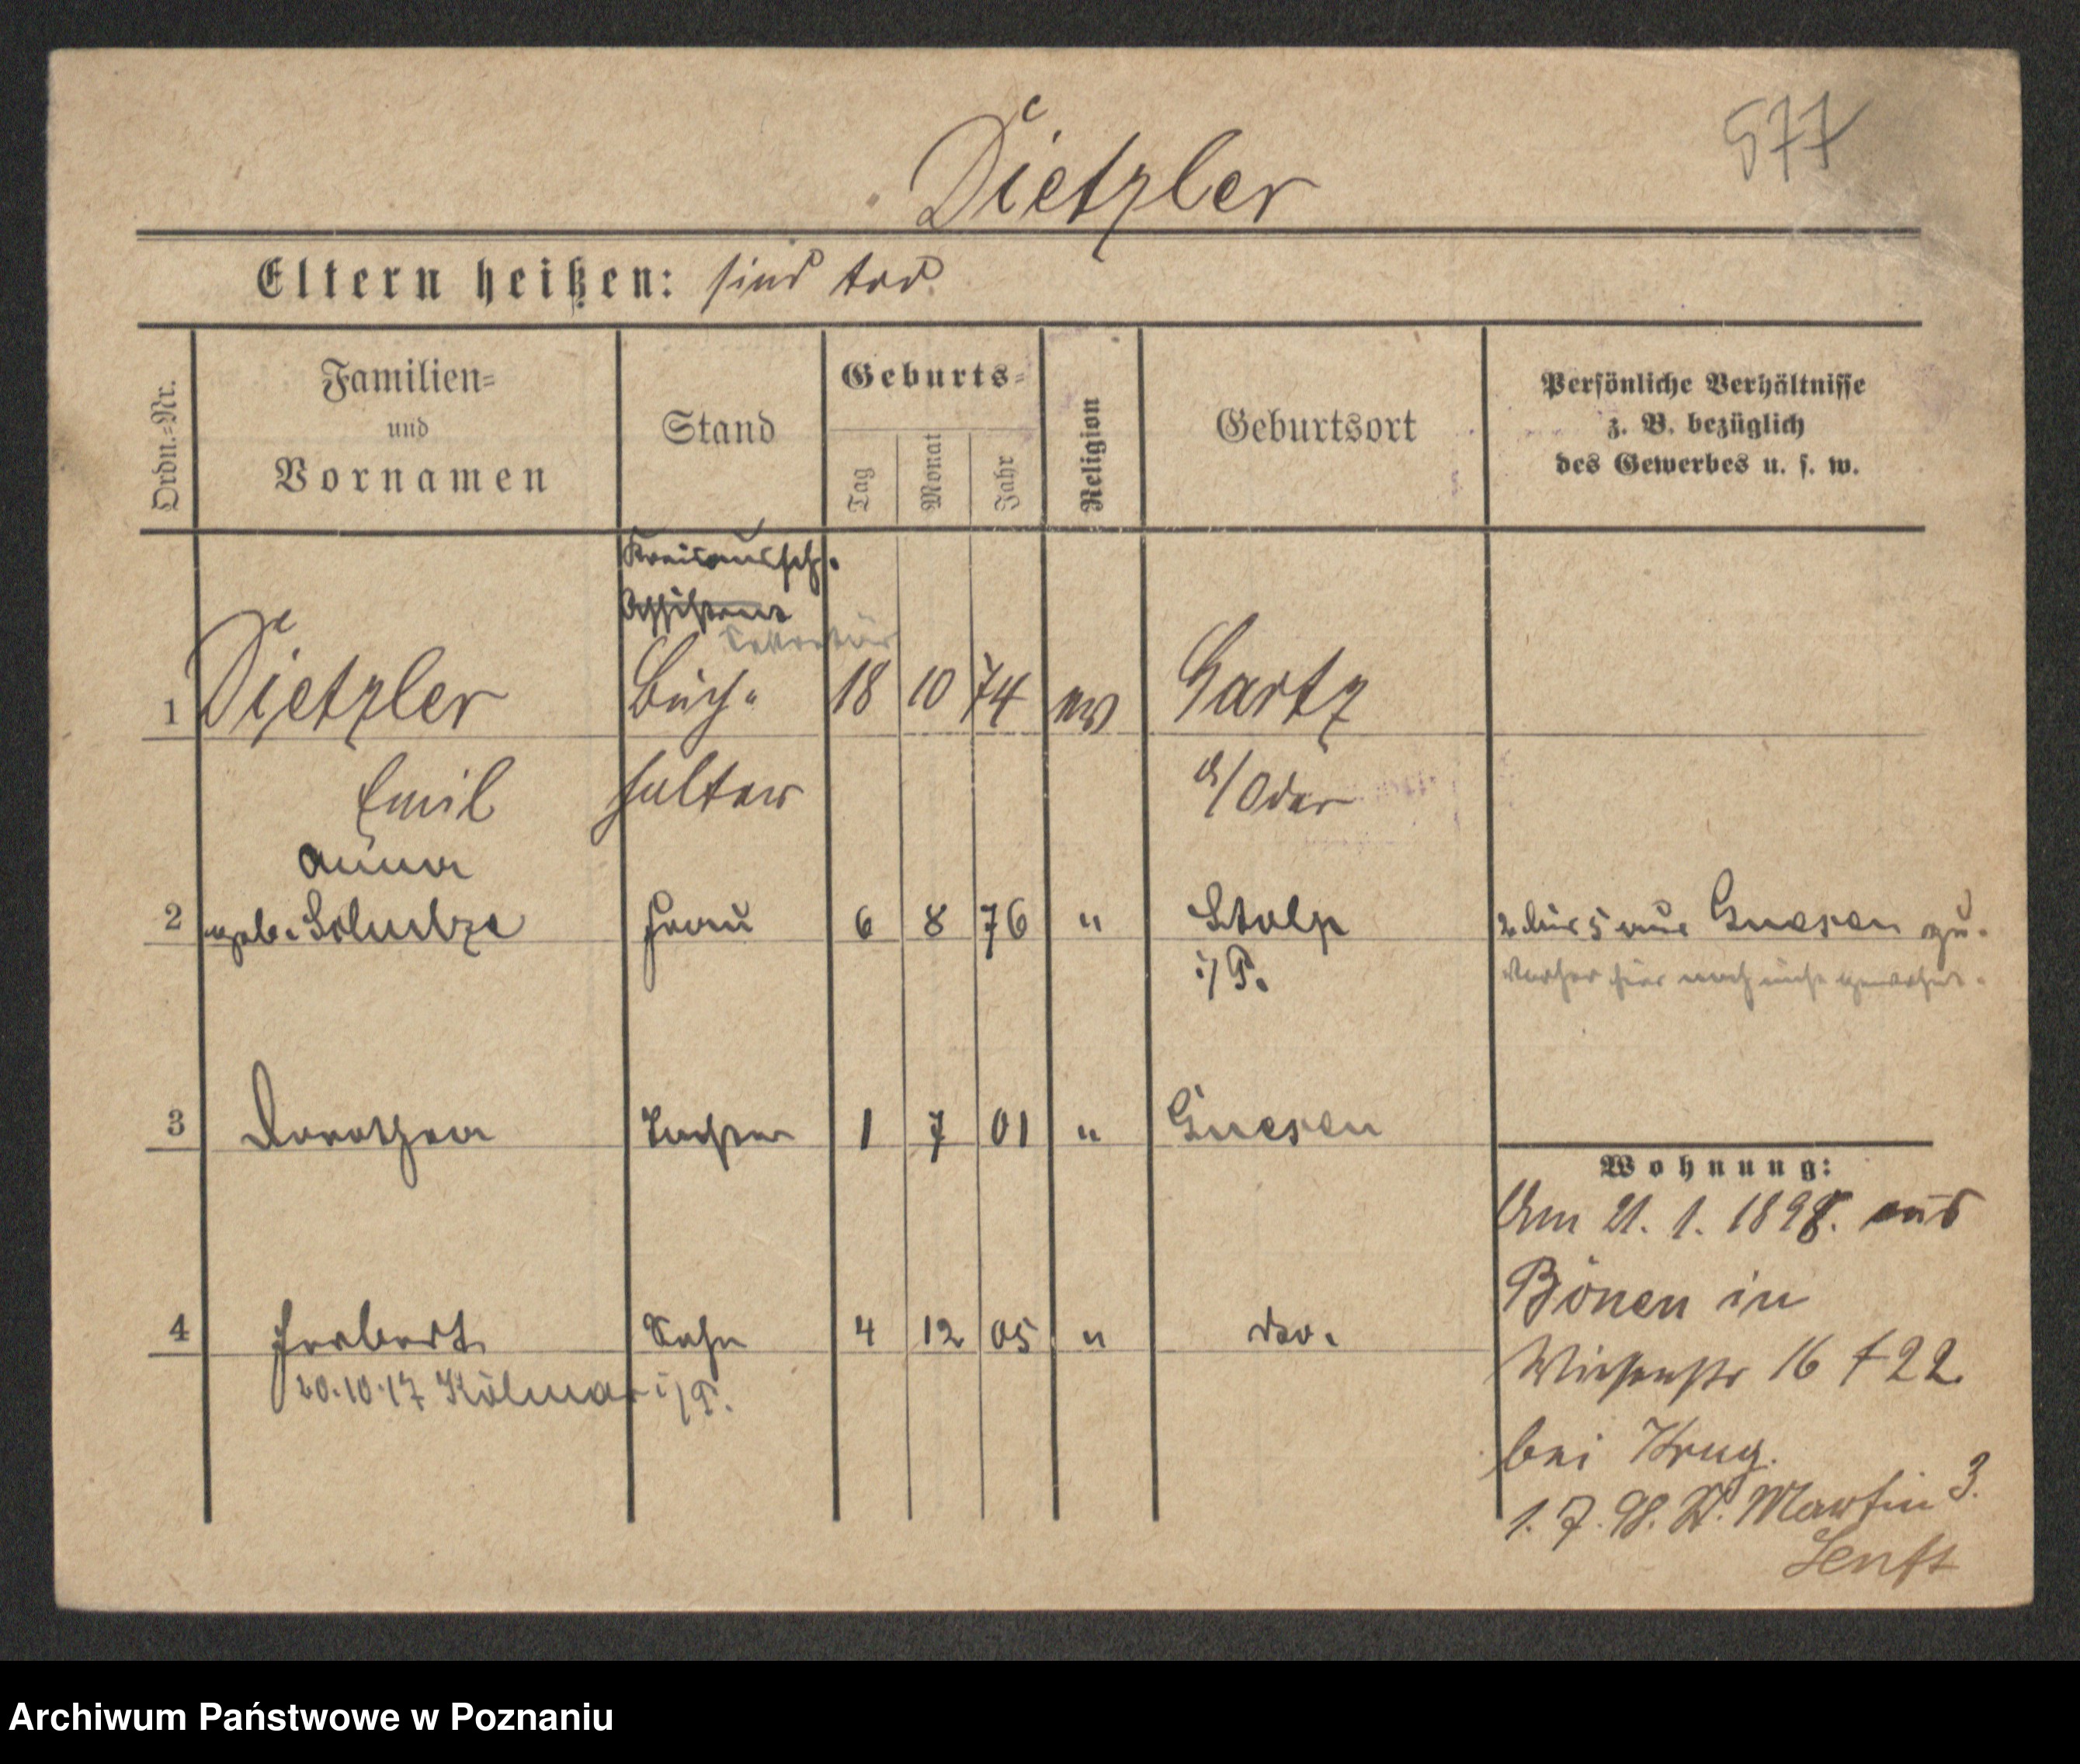 577
Dietzler
Eltern heißen: sind tod.
Ordn.-Nr.
Familien-
und
Vornamen
Stand
Geburts-
Tag
Monat
Jahr
Religion
Geburtsort
Persönliche Verhältnisse
z. B. bezüglich
des Gewerbes u. s. w.
Kreisaussch.
Assistent
Sekretär
1 Dietzler Buch- 18 10 74 ev Gartz
Emil halter a/Oder
Anna
2 geb. Schulze Frau 6 8 76 " Stolp
i/P.
2 bis 5 aus Gnesen zu.
Vorher hier noch nicht gewohnt.
3 Dorothea Tochter 1 7 01 " Gnesen
4 Herbert Sohn 4 12 05 " do.
20.10.17 Kolmar i/P.
Wohnung:
Am 21. 1. 1898. aus
Bönen in
16 + 22.
bei Krug.
1. 7. 98. St. Martin 3.
Senft
Archiwum Państwowe w Poznaniu